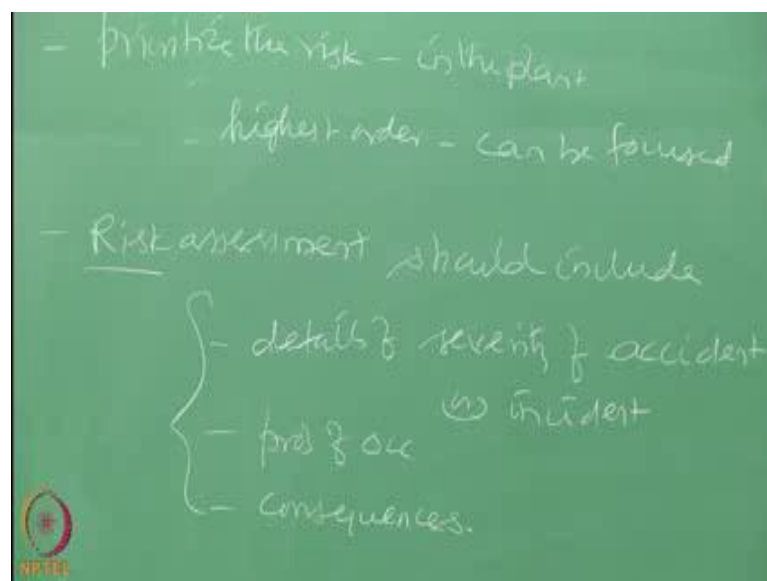 - prioritize the risk - in the plant
- highest order - can be focused
- Risk assessment should include
- details of severity of accident
(or) incident
- prob of occ
- consequences.
NPTEL